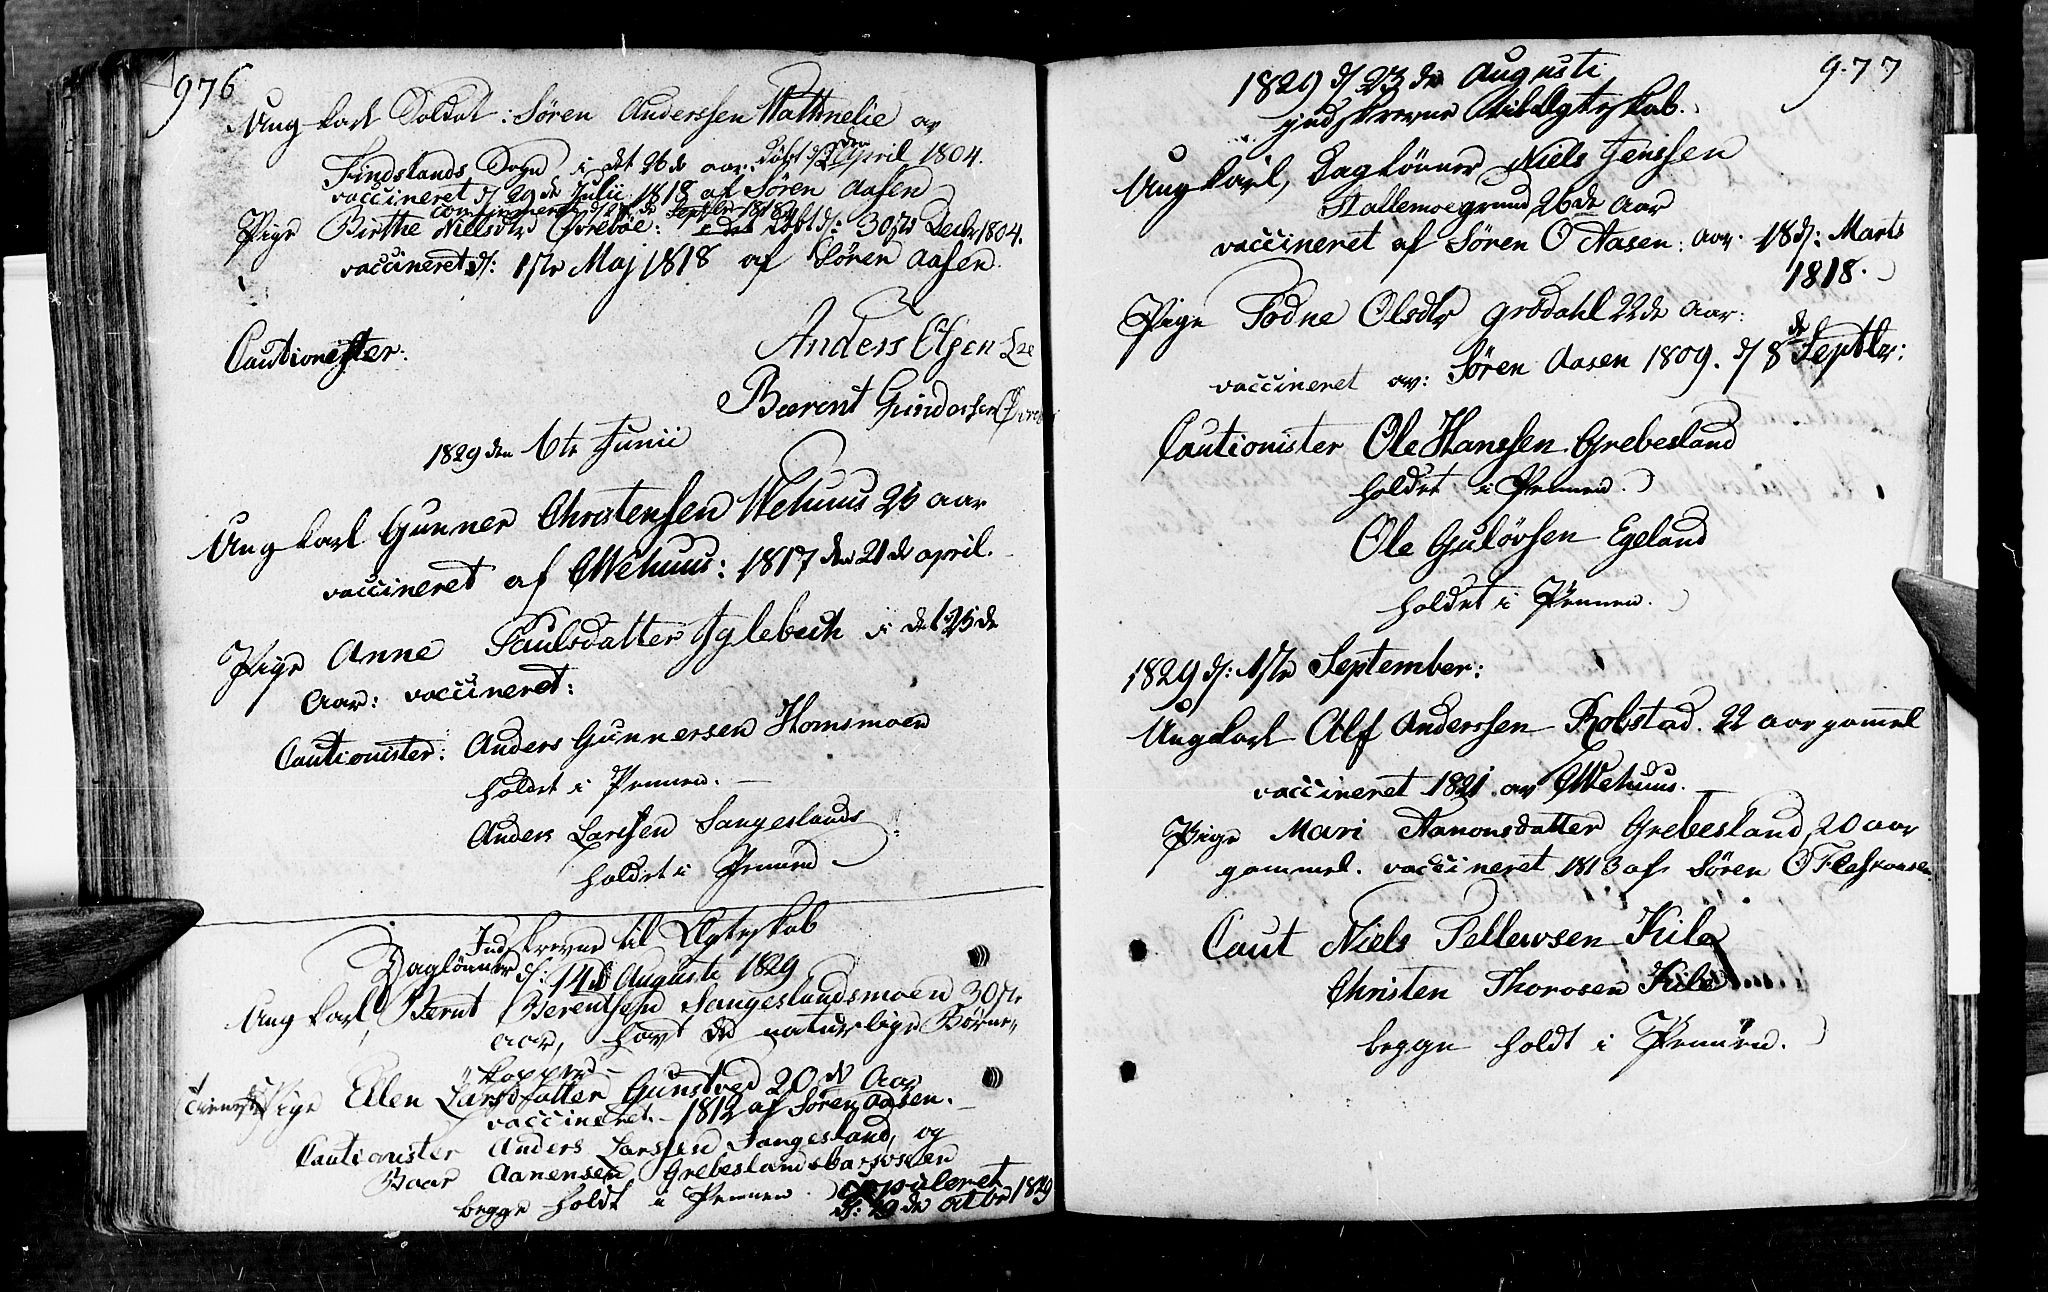 976
Ung karl Soldat: Sören Anderssen Wathnelie av
Findslands Sogn i det 26de aar. döbt d/2den April 1804.
vaccineret d/ 29de Julii 1818 af Sören Aasen
confirmeret
Pige Birthe Nielsdtr Øvrebøe: döbt d: 30te Decbr 1804.
vaccineret d: 1ste Maj 1818 af Sören Aasen.
Cautionister: Anders Olsen
Berent Gundersen
1829 den 6te Junii
Ung karl Gunner Christensen Wehuus 25 aar
vaccineret af CWehuus: 1817 den 21de april.
Pige Anne Paulsdatter Iglebech i det 25de
Aar: vaccineret:
Cautionister: Anders Gunnersen Homsmoen
holdet i Pennen.
Anders Larssen Sangeslands
holdet i Pennen
Indskrevne til Ægteskab
d: 14d Augusti 1829
Daglönner
Ung karl, Bernt Berentsen Sangeslandsmoen 30te
aar, havt de naturlige Börne-
kopper
tieneste Pige Ellen Larsdatter Gunstved 20de Aar
vaccineret 1812 af Sören Aasen.
Cautionister Anders Larssen Sangesland, og
Baar Aanensen
begge holdt i Pennen. copuleret
d: 29de octbr 1829
977
1829 d/ 23de Augusti
indskrevne til Ægteskab.
Ung karl, Daglönner Niels Jenssen
Stallemoegrund 26de Aar
vaccineret af Sören O Aasen: aar. 18 d: Marts
1818.
Pige Todne Olsdtr Grödahl 22de Aar:
vaccineret av: Sören Aasen 1809. d/ 8de Septbr:
Cautionister Ole Hanssen Grebesland
holdet i Pennen.
Ole Gulövsen Egeland
holdet i Pennen.
1829 d: 1ste September:
Ungkarl Alf Anderssen Robstad. 22 aar gammel
vaccineret 1821 av CWehuus.
Pige Mari Aanonsdatter Grebesland, 20 aar
gammel. vaccineret 1813 af Sören O
Caut Niels Tellewsen Kile
Christen Thorosen Kile
begge holdt i Pennen.